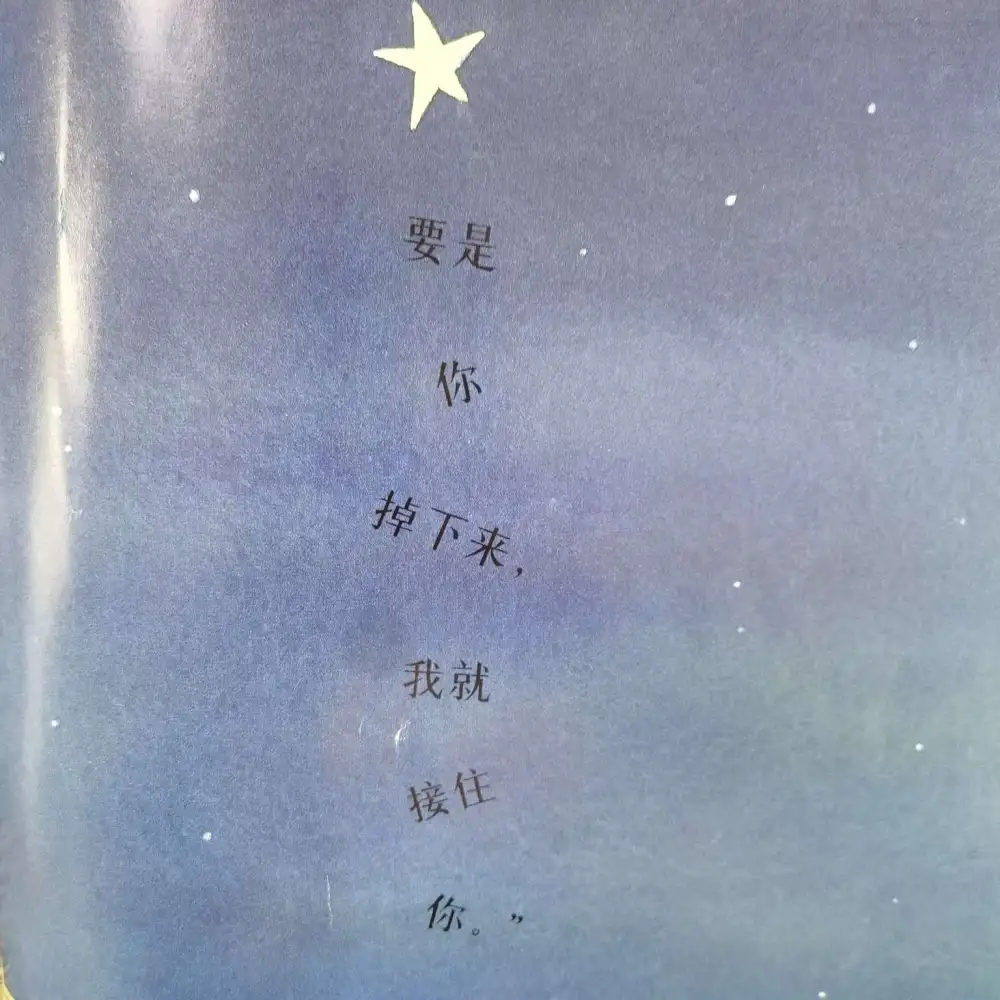 要是
你
掉下来，
我就
接住
你。”